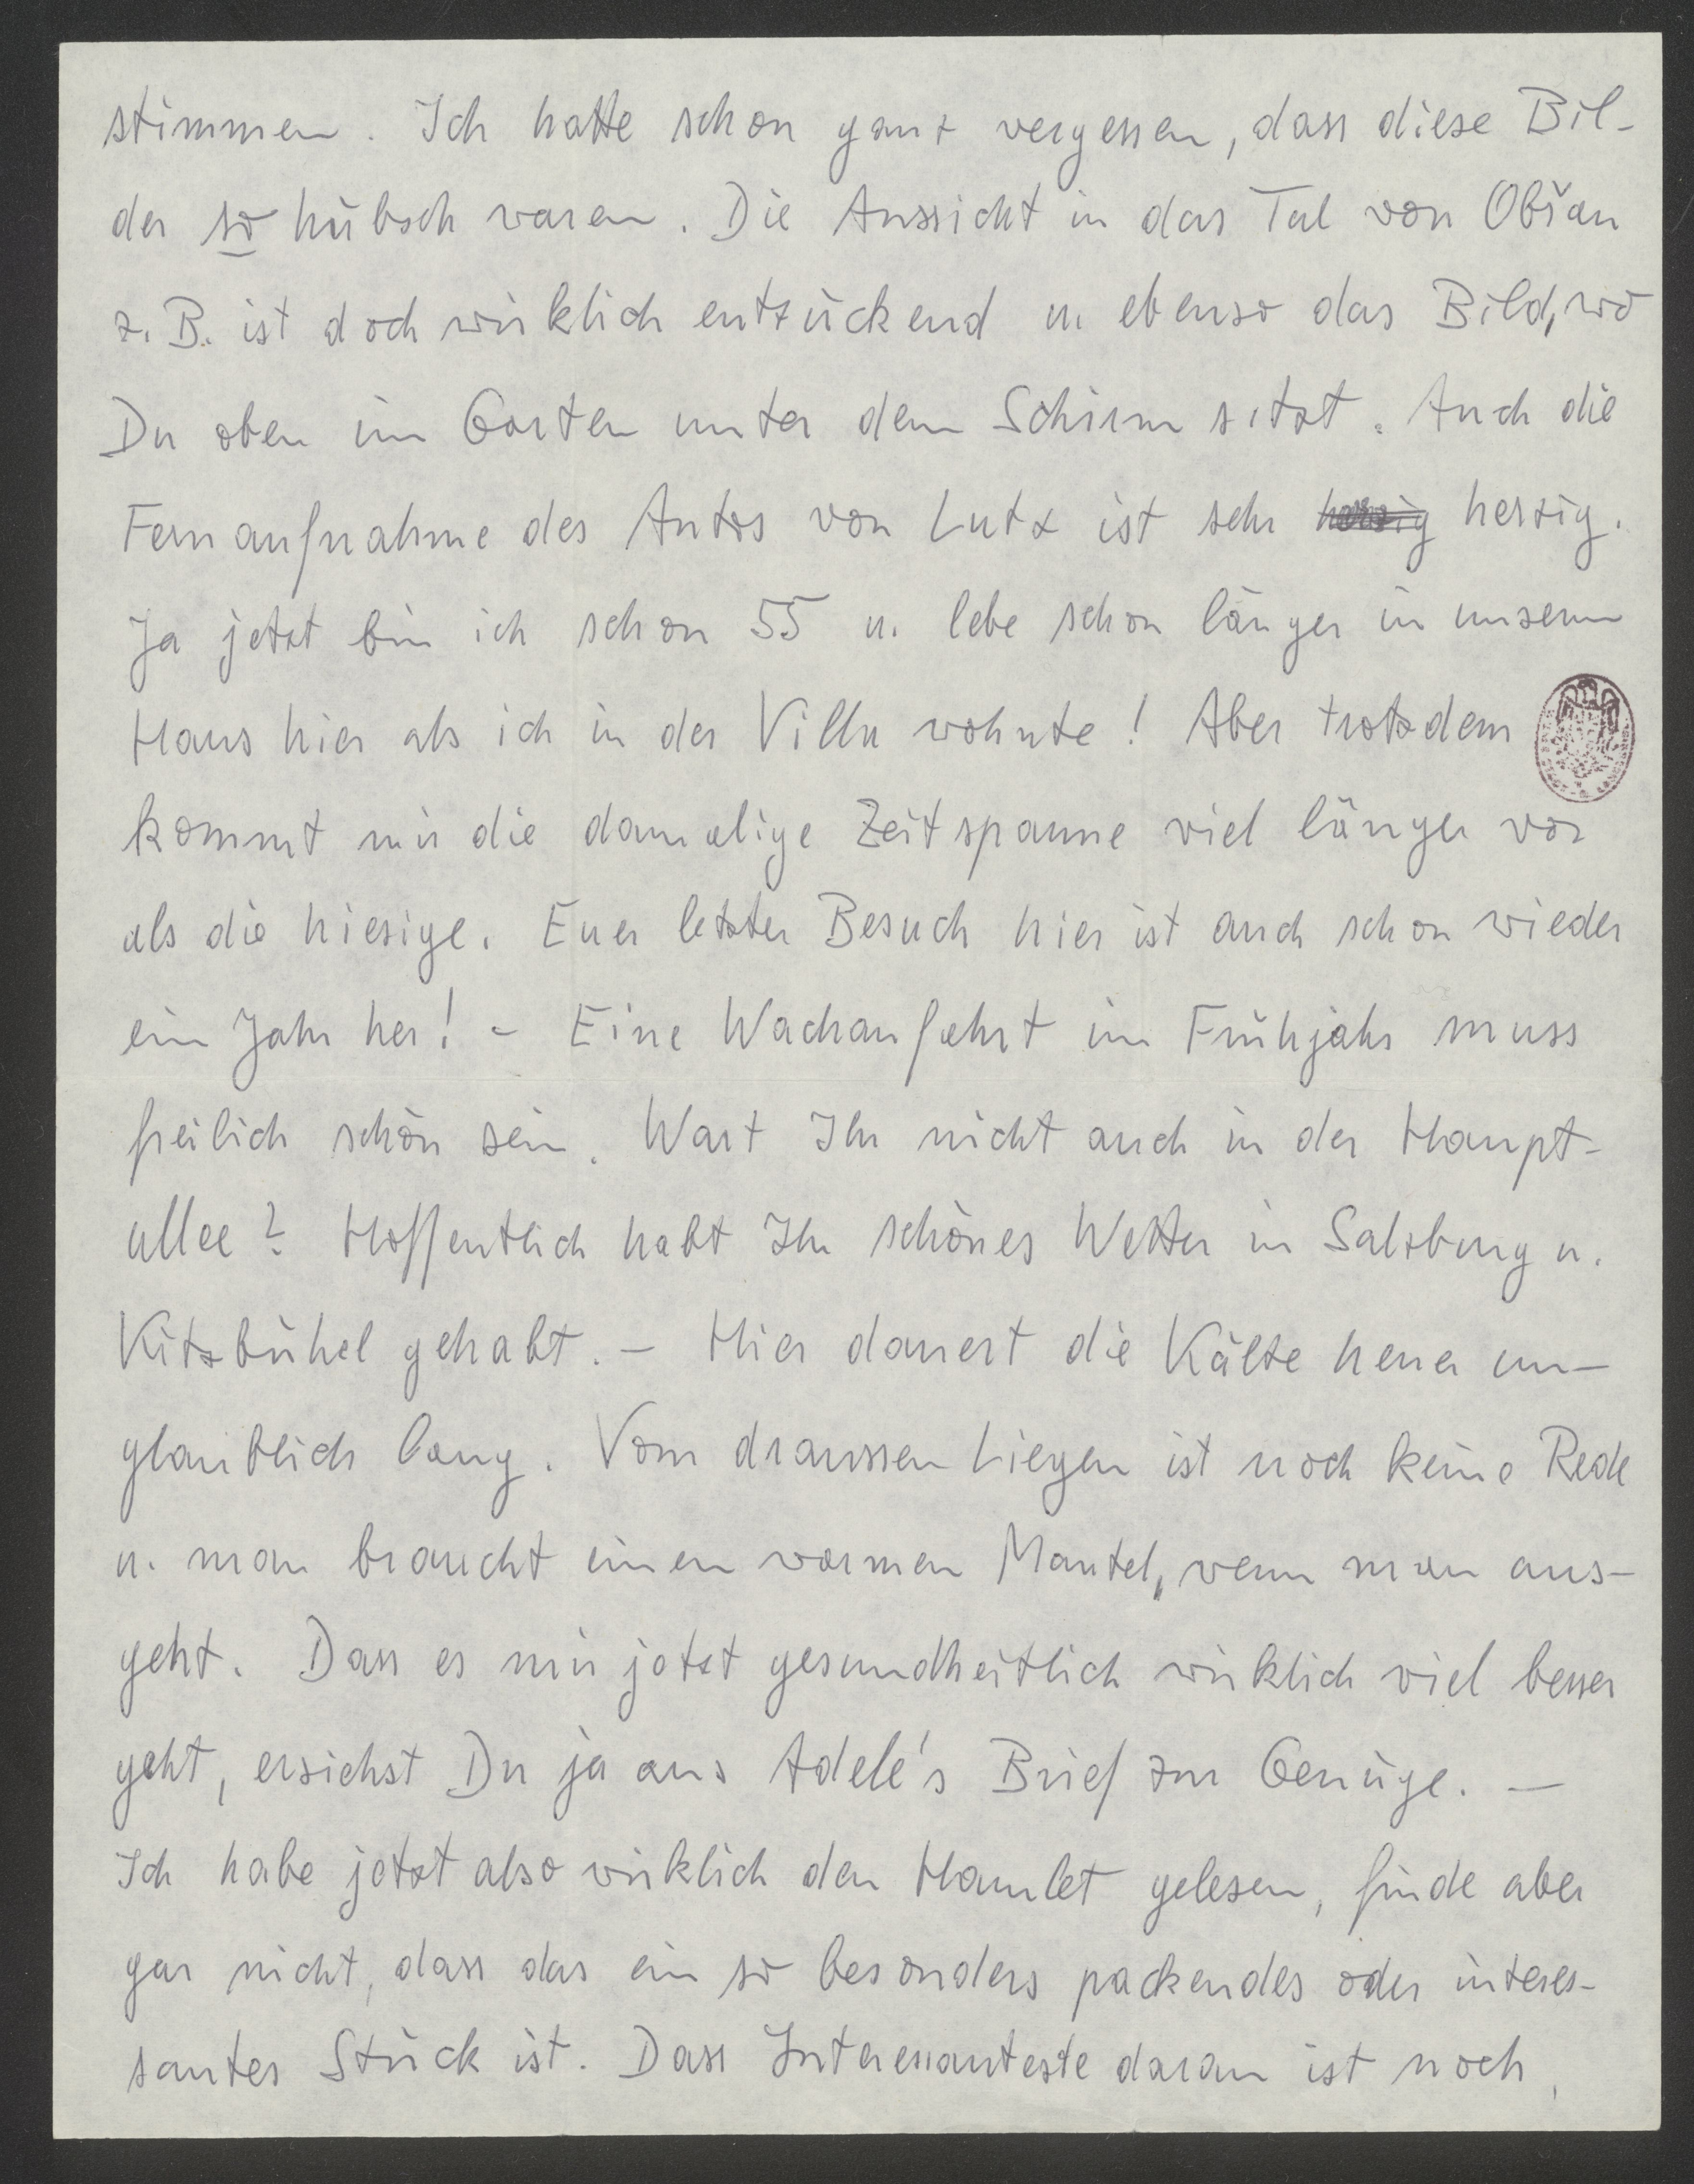 stimmen. Ich hatte schon ganz vergessen, dass diese Bil-
der so hübsch waren. Die Aussicht in das Tal von Obřan
z. B. ist doch wirklich entzückend u. ebenso das Bild, wo
Du oben im Garten unter dem Schirm sitzt. Auch die
Fernaufnahme des Autos von Lutz ist sehr herzig herzig.
Ja jetzt bin ich schon 55 u. lebe schon länger in unserm
Haus hier als ich in der Villa wohnte! Aber trotzdem
kommt mir die damalige Zeitspanne viel länger vor
als die hiesige. Euer letzter Besuch hier ist auch schon wieder
ein Jahr her! - Eine Wachaufahrt im Frühjahr muss
freilich schön sein. Wart Ihr nicht auch in der Haupt-
allee? Hoffentlich habt Ihr schönes Wetter in Salzburg u.
Kitzbühel gehabt. — Hier dauert die Kälte heuer un-
glaublich lang. Vom draussen Liegen ist noch keine Rede
u. man braucht einen warmen Mantel, wenn man aus-
geht. Dass es mir jetzt gesundheitlich wirklich viel besser
geht, ersiehst Du ja aus Adele's Brief zur Genüge. —
Ich habe jetzt also wirklich den Hamlet gelesen, finde aber
gar nicht, dass das ein so besonders packendes oder interes-
santes Stück ist. Dass Interessanteste daran ist noch,